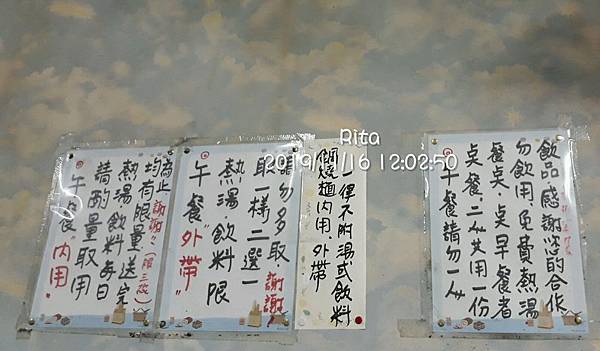 午餐"內用"
請酌量取用
熱湯.飲料每日
均有限量,送完
為止 謝謝!!(限三碗)
午餐"外帶"
熱湯.飲料限
取一樣二選一
請勿多取 謝謝
鍋燒麵內用.外帶
一律不附湯或飲料
午餐請勿一人
桌餐.二人共用一份
餐桌.桌早餐者
勿飲用免費熱湯
飲品感謝您的合作
Rita
2019/1/16 12:02:50